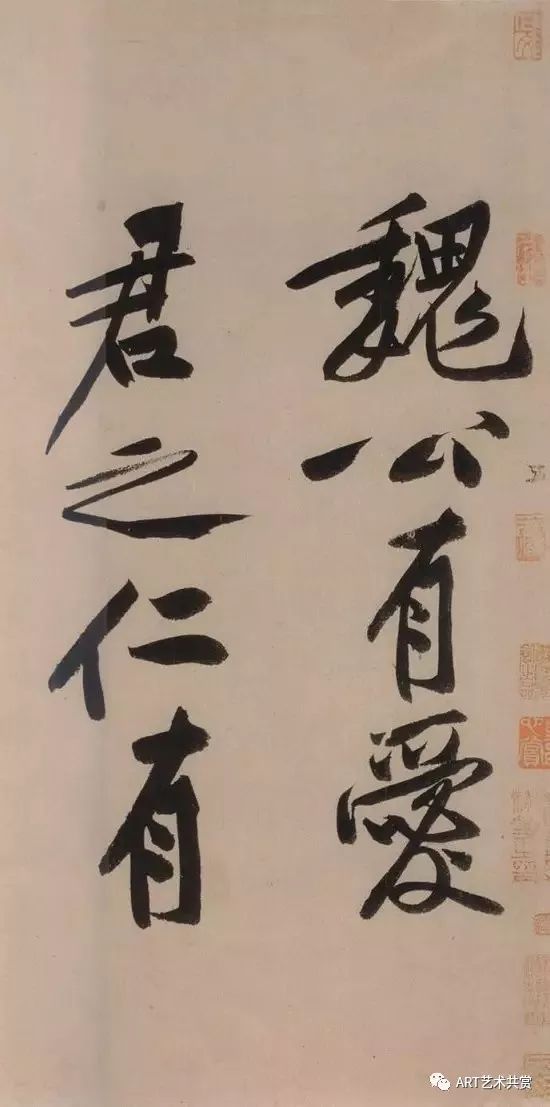 魏公有愛
君之仁有
ART艺术共赏